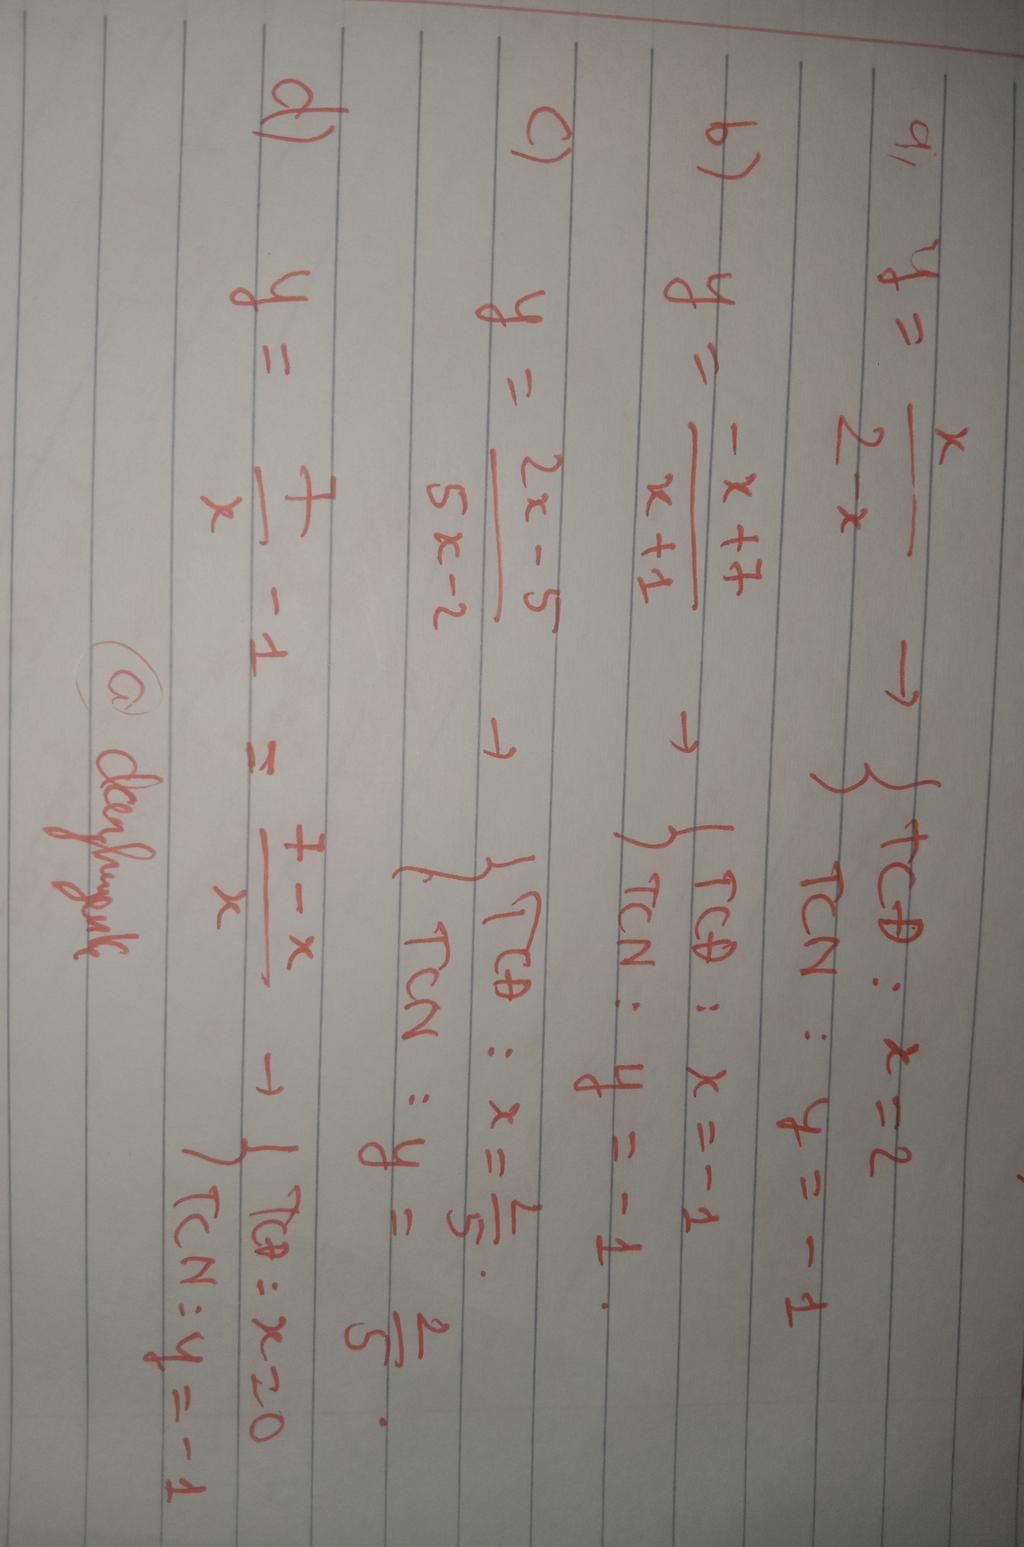 a, y = x/(2-x) → { TCĐ : x = 2
TCN : y = -1
b) y = (-x+7)/(x+1) → { TCĐ : x = -1
TCN : y = -1.
c) y = (2x-5)/(5x-2) → { TCĐ : x = 2/5.
TCN : y = 2/5.
d) y = 7/x - 1 = (7-x)/x → { TCĐ : x = 0
TCN : y = -1
@